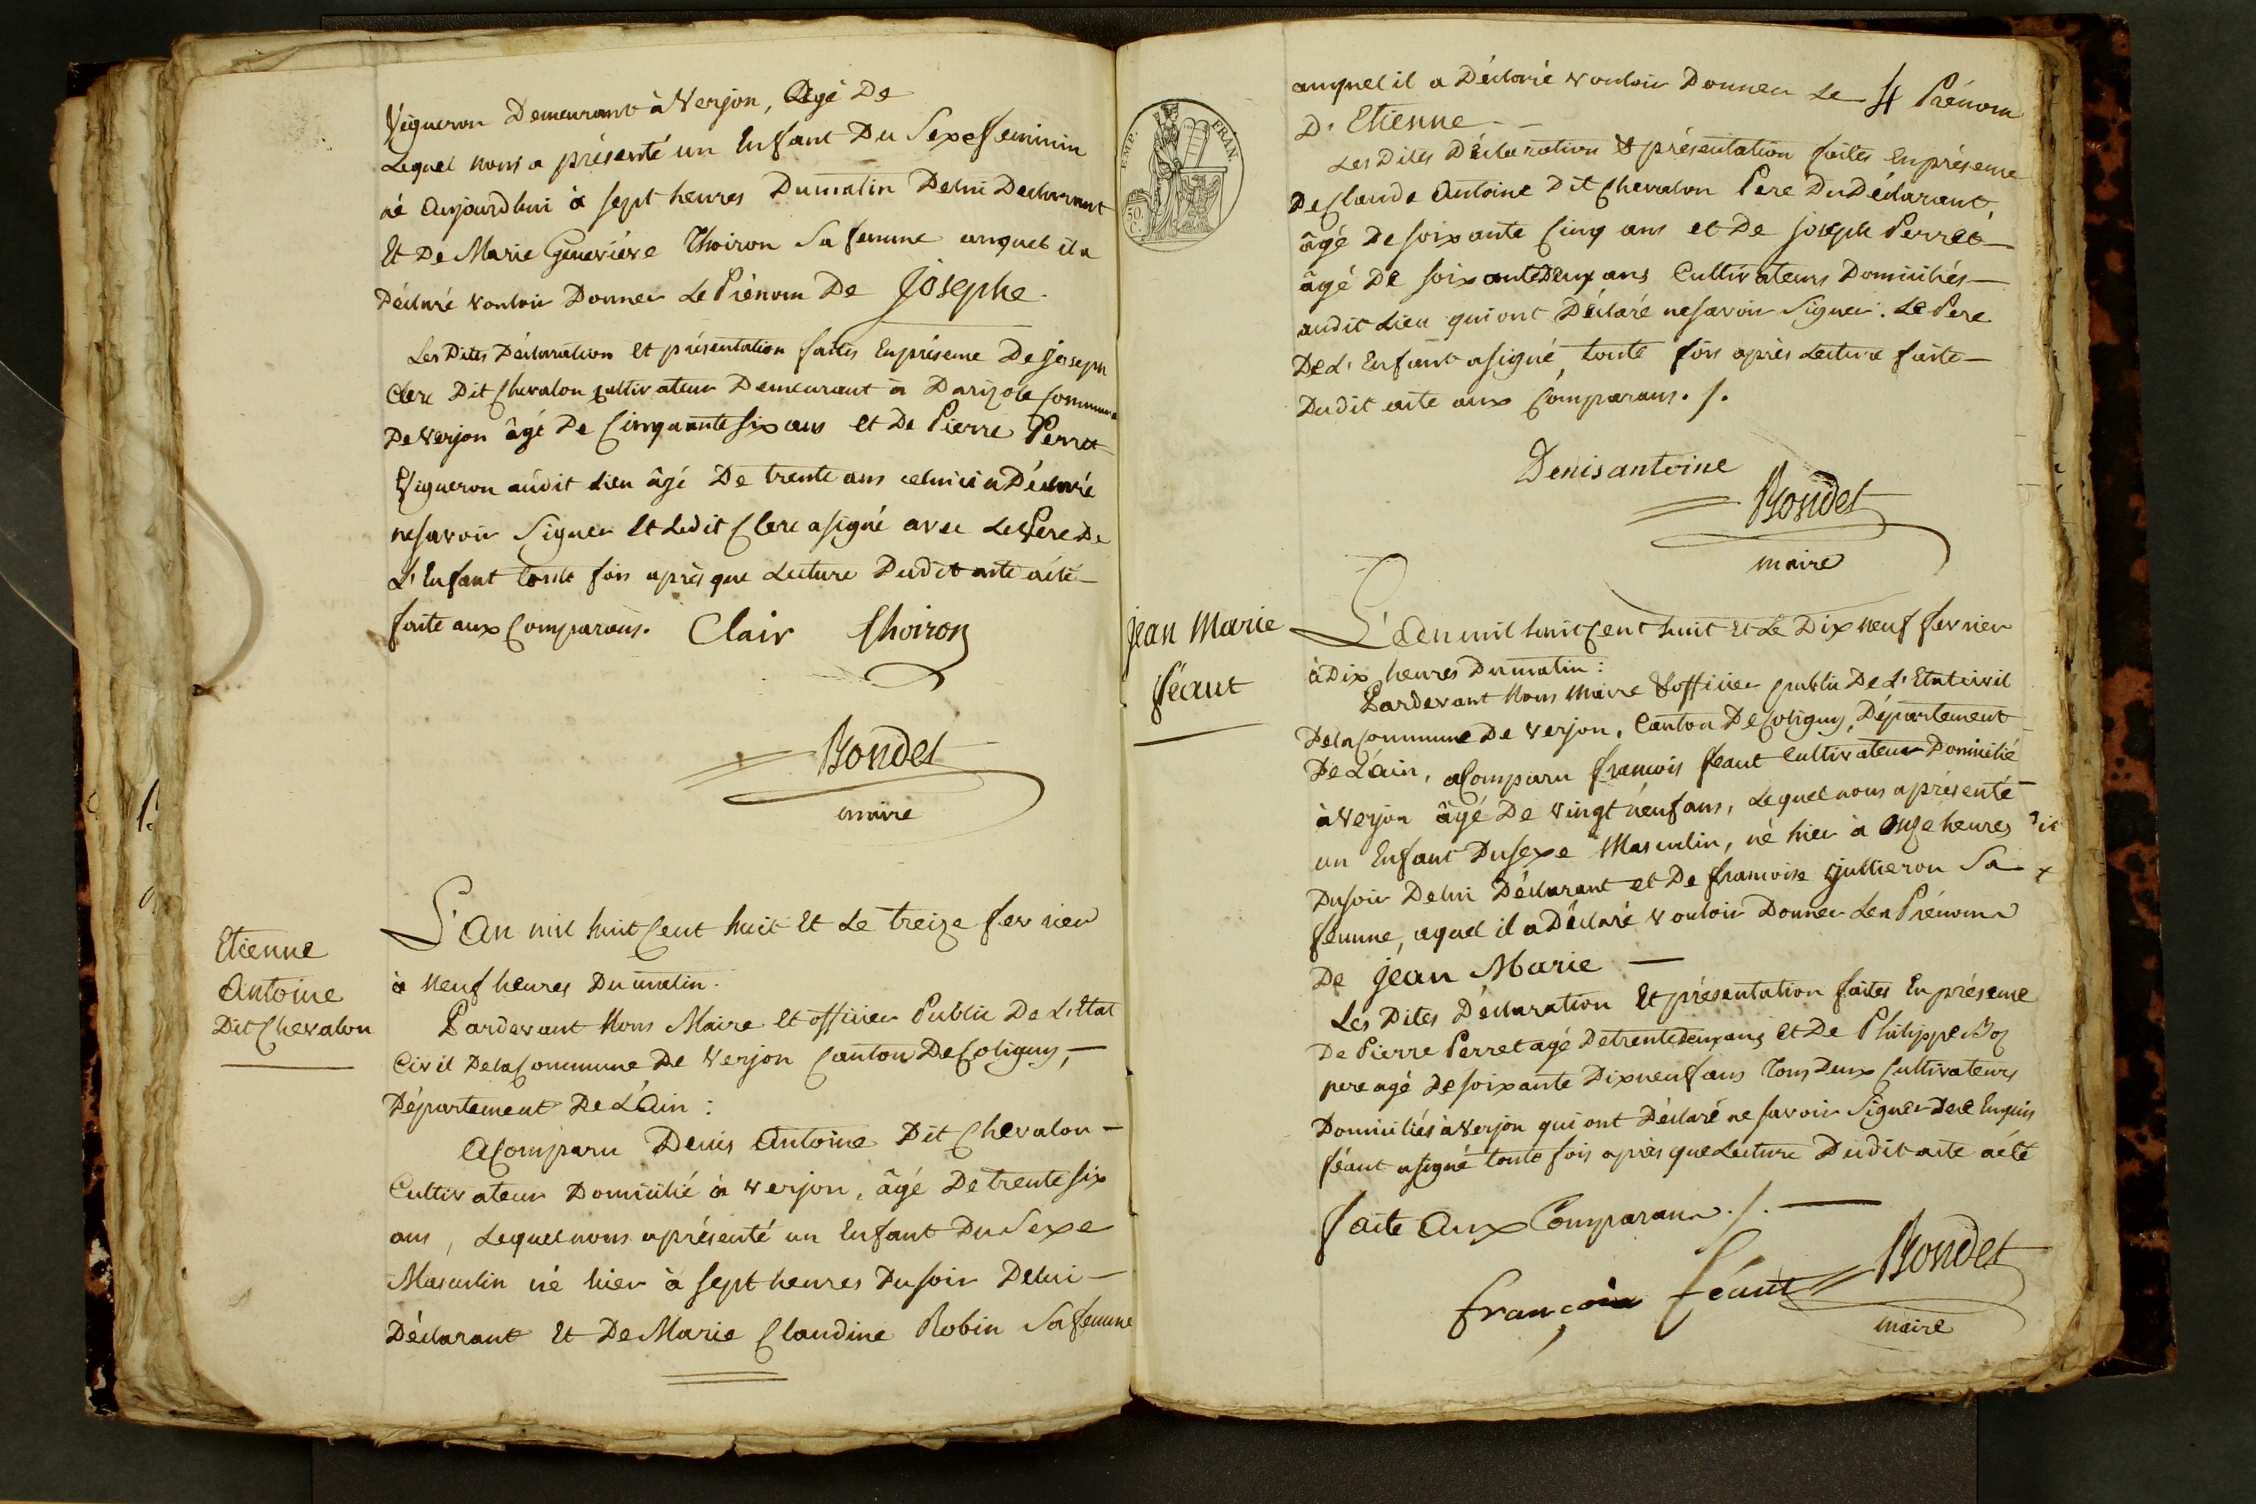 Vigneron Demeurant à Verjon, Agé De
Lequel nous a présenté un Enfant Du Sexe feminin
né Aujourdhui à sept heures Dumatin Delui Declarant
Et De Marie Geneviéve Thoiron Sa femme auquel il a
Déclaré vouloir Donner Le Prénom De Josephe.
Les Dites Déclaration et présentation faites En présence De joseph
Clerc Dit Chevalon cultivateur Demeurant à Darizole Commune
De Verjon âgé De Cinquante six ans et De Pierre Perret
Vigneron audit Lieu âgé De trente ans celui ci a Déclaré
ne savoir Signer et Ledit Clerc a signé avec Le Pere De
L'Enfant toute fois après que Lecture Dudit acte a été
faite aux Comparans. Clair Thoiron
Bondet
maire
Etienne
Antoine
Dit Chevalon
L'An mil huit Cent huit Et Le treize fevrier
à neuf heures Du matin.
Pardevant Nous Maire Et officier Public De L'Etat
Civil De la Commune De Verjon Canton De Coligny,
Département De L'Ain :
A Comparu Denis Antoine Dit Chevalon
Cultivateur Domicilié à Verjon, âgé De trente six
ans, Lequel nous a présenté un Enfant Du Sexe
Masculin né hier à sept heures Du soir De lui
Déclarant Et De Marie Claudine Robin Sa femme
EMP. FRAN.
50 C.
auquel il a Déclaré vouloir Donner Le Prénom
D'Etienne.
Les Dites Déclaration & présentation faites En présence
De Claude Antoine Dit Chevalon Pere Du Déclarant,
âgé De soixante Cinq ans et De joseph Perret
âgé De soixante Deux ans Cultivateurs Domiciliés
audit Lieu qui ont Déclaré ne savoir Signer. Le Pere
De L'Enfant a signé, toute fois après Lecture faite
Dudit acte aux Comparans./.
Denis antoine
Bondet
maire
jean Marie
féaut
L'An mil huit Cent huit Et Le Dix neuf fevrier
à Dix heures Du matin :
Pardevant Nous Maire & officier public De L'Etat civil
De la Commune De Verjon, Canton De Coligny, Département
De L'ain, a Comparu francois feaut Cultivateur Domicilié
à Verjon âgé De vingt neuf ans, Lequel nous a présenté
un Enfant Du sexe Masculin, né hier à Onze heures
Du soir De lui Déclarant et De francoise Gullieron Sa
femme, aquel il a Déclaré vouloir Donner Les Prénoms
De jean Marie
Les Dites Déclaration Et présentation faites En présence
De Pierre Perret agé De trente Deux ans et De Philippe Boz
pere agé De soixante Dix neuf ans Tous Deux Cultivateurs
Domiciliés à Verjon qui ont Déclaré ne savoir Signer De ce Enquis
féaut a signé toute fois après que Lecture Dudit acte a été
faite Aux Comparans./.
françois féaut Bondet
maire